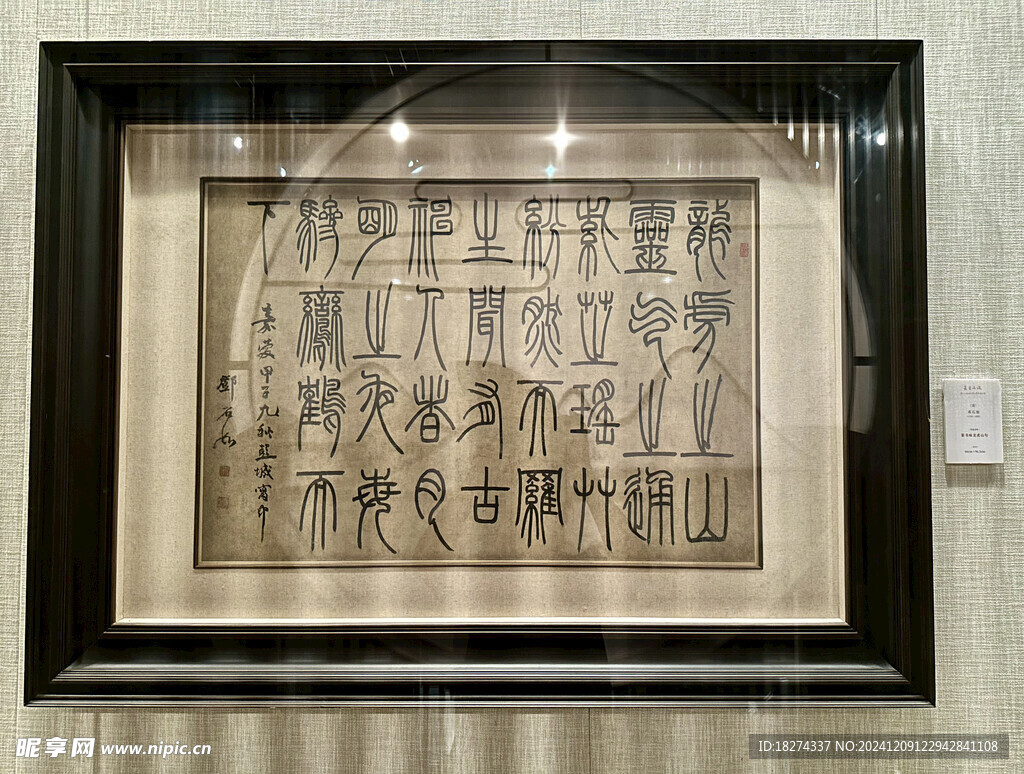 龍虎之山
靈气之通
紫芝瑤艸
紛然而羅
生間有古
神人者月
明之夜每
驂鸞鶴而
下
嘉慶甲子九秋城寓
鄧石如
昵享网 www.nipic.cn
ID:18274337 NO:20241209122942841108